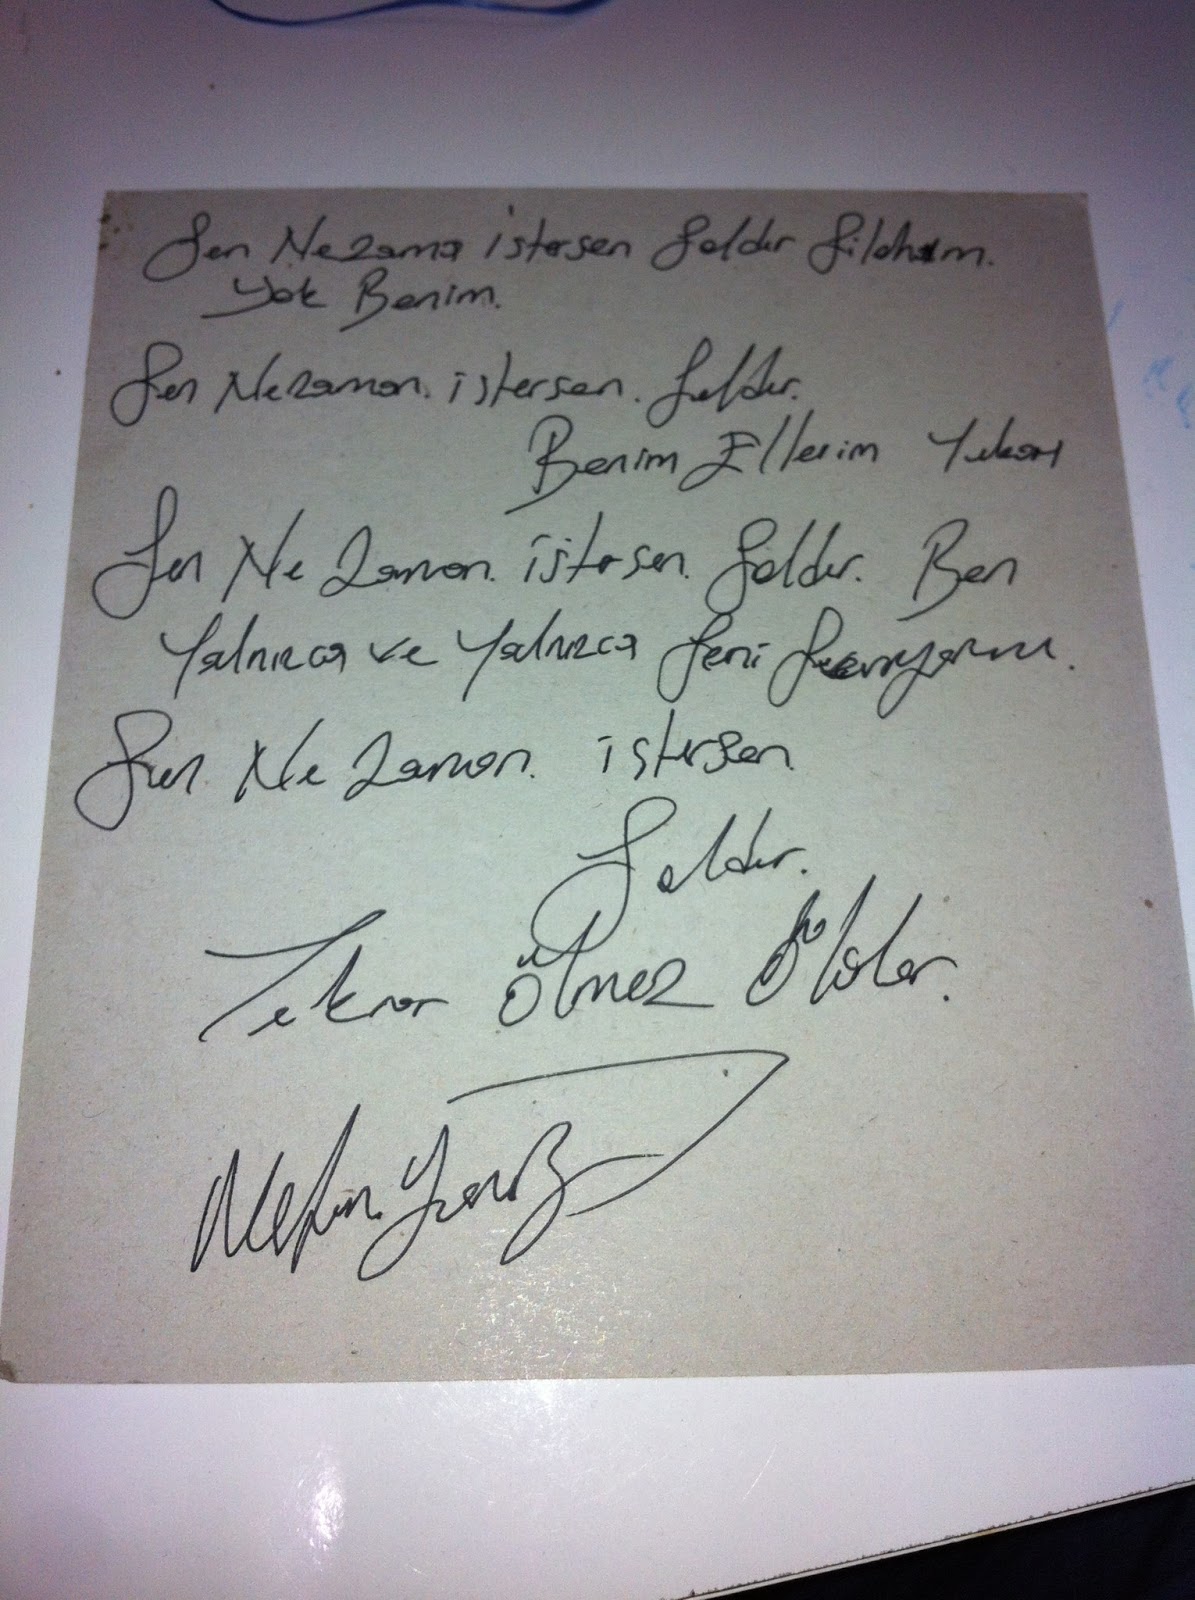 Sen Ne zama istersen Saldır Silahım.
Yok Benim.
Sen Ne zaman. istersen. Saldır.
Benim Ellerim Yukarı
Sen Ne Zaman. istersen. Saldır. Ben
Yalnızca ve Yalnızca Seni Seviyorum.
Sen Ne Zaman. istersen
Saldır.
Tekrar Ölmez Ölüler.